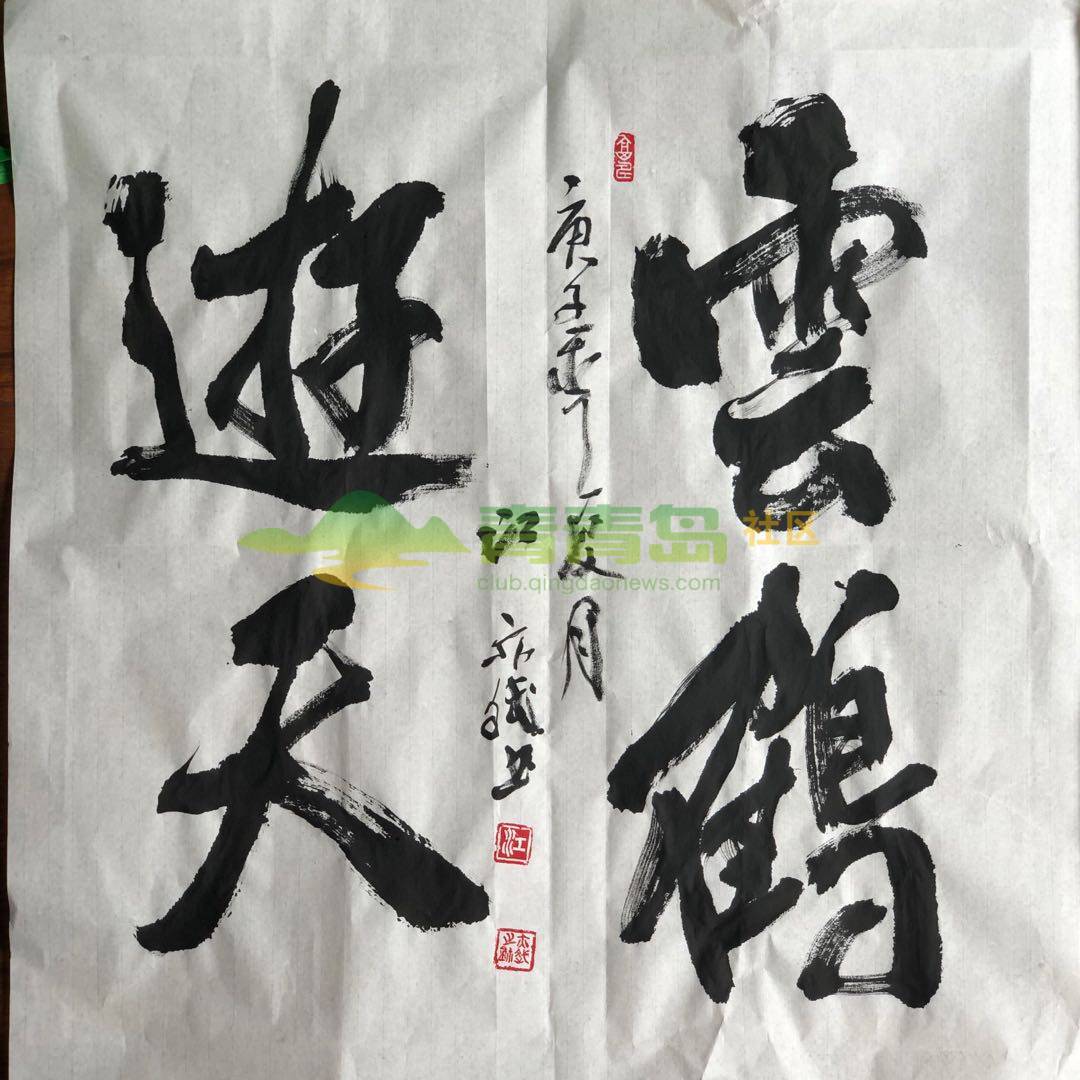 雲鶴
遊天
庚子年夏月
江
江
青青岛社区
club.qingdaonews.com